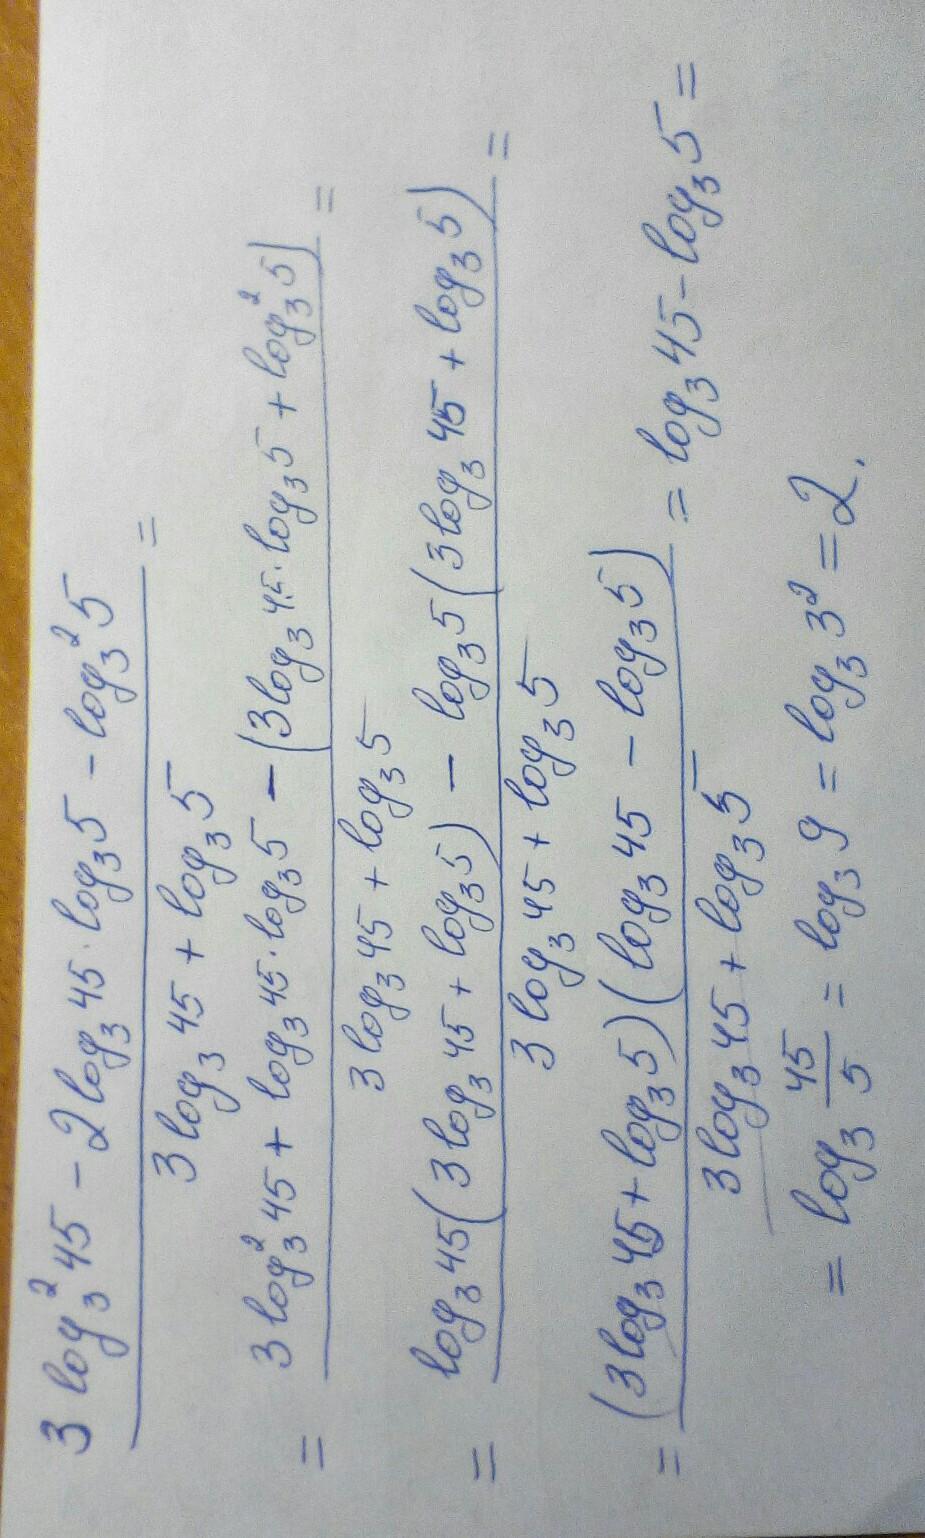 3 log₃² 45 − 2 log₃ 45 · log₃ 5 − log₃² 5 =
3 log₃ 45 + log₃ 5
= 3 log₃² 45 + log₃ 45 · log₃ 5 − (3 log₃ 45 · log₃ 5 + log₃² 5) =
3 log₃ 45 + log₃ 5
= log₃ 45 (3 log₃ 45 + log₃ 5) − log₃ 5 (3 log₃ 45 + log₃ 5) =
3 log₃ 45 + log₃ 5
= (3 log₃ 45 + log₃ 5) (log₃ 45 − log₃ 5) = log₃ 45 − log₃ 5 =
3 log₃ 45 + log₃ 5
= log₃ 45/5 = log₃ 9 = log₃ 3² = 2.